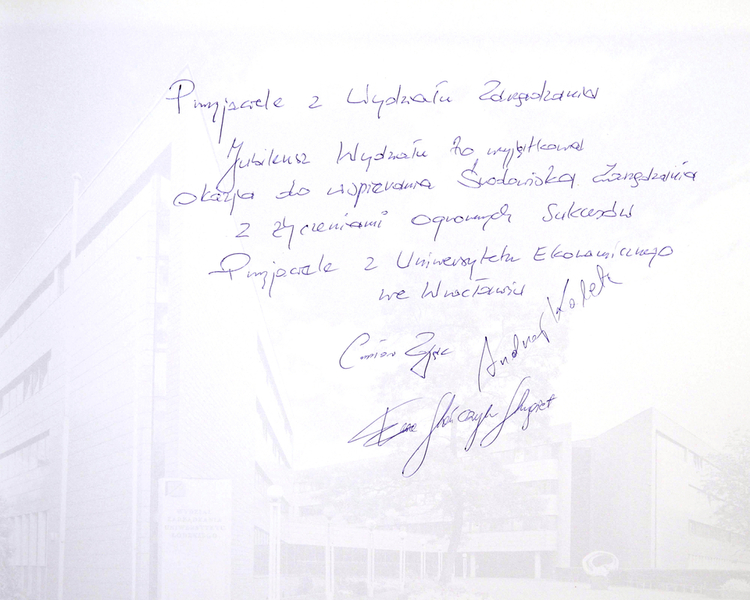 Przyjaciele z Wydziału Zarządzania
Jubileusz Wydziału to wyjątkowa
okazja do wspierania Środowiska Zarządzania
z życzeniami ogromnych sukcesów
Przyjaciele z Uniwersytetu Ekonomicznego
we Wrocławiu
Andrzej Kaleta
Ewa Stańczyk-Hugiet